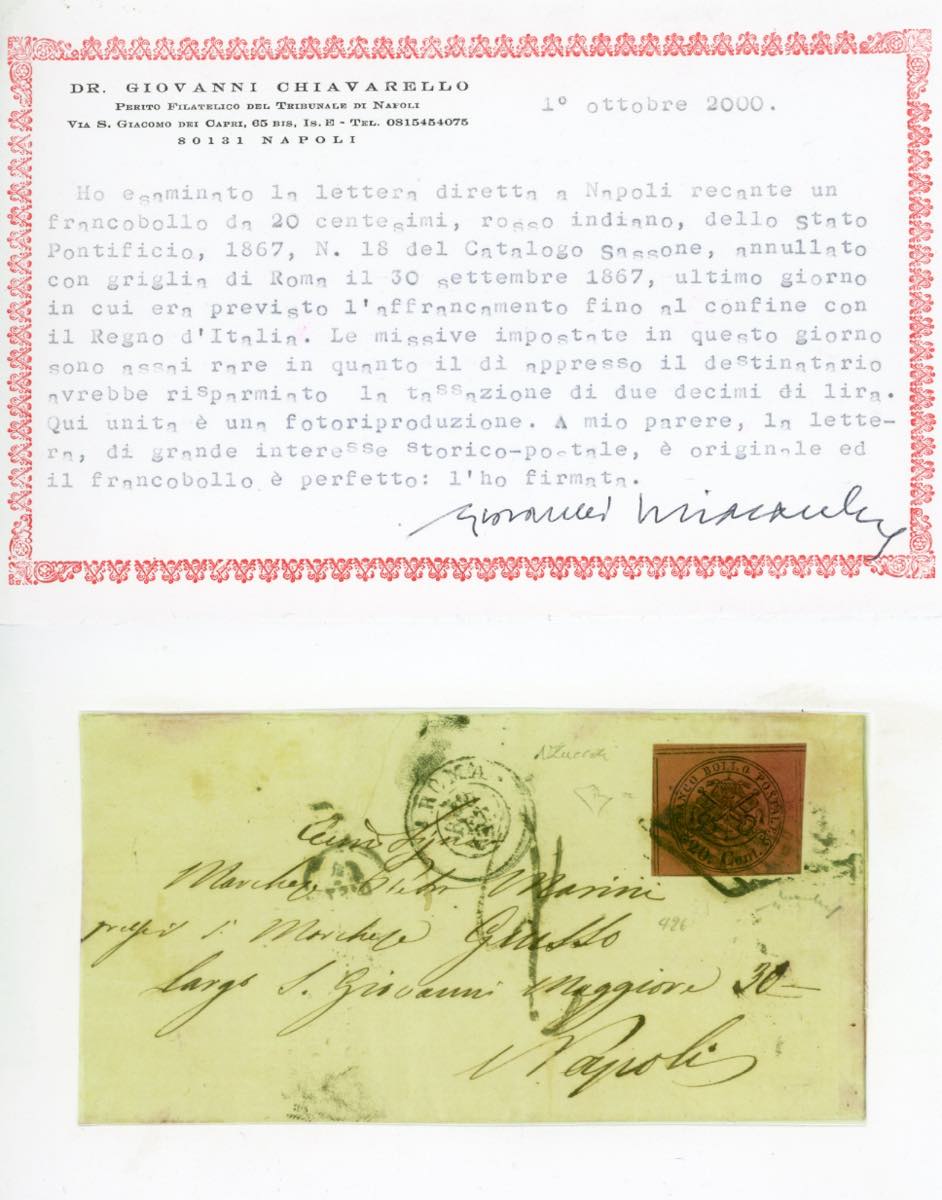 DR. GIOVANNI CHIAVARELLO
PERITO FILATELICO DEL TRIBUNALE DI NAPOLI
VIA S. GIACOMO DEI CAPRI, 65 BIS, IS. E - TEL. 0815454075
80131 NAPOLI
1º ottobre 2000.
Ho esaminato la lettera diretta a Napoli recante un
francobollo da 20 centesimi, rosso indiano, dello Stato
Pontificio, 1867, N. 18 del Catalogo Sassone, annullato
con griglia di Roma il 30 settembre 1867, ultimo giorno
in cui era previsto l'affrancamento fino al confine con
il Regno d'Italia. Le missive impostate in questo giorno
sono assai rare in quanto il dì appresso il destinatario
avrebbe risparmiato la tassazione di due decimi di lira.
Qui unita è una fotoriproduzione. A mio parere, la lette-
ra, di grande interesse storico-postale, è originale ed
il francobollo è perfetto: l'ho firmata.
ROMA
FRANCO BOLLO POSTALE
20 Cent.
Marchese Marini
Marchese Giusso
largo S. Giovanni Maggiore 30
Napoli
426